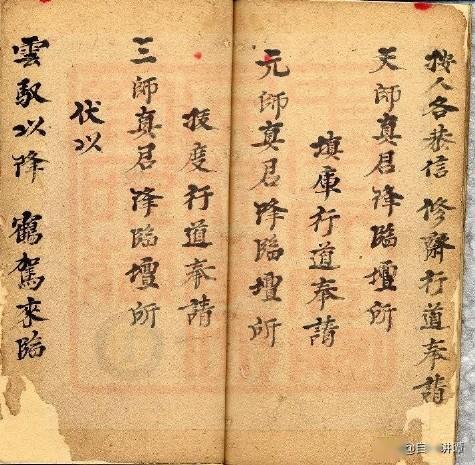 按人各恭信 修齋行道奉請
天師真君降臨壇所
填庫行道奉請
元師真君降臨壇所
拔度行道奉請
三師真君降臨壇所
伏以
雲馭以降 鶴駕來臨